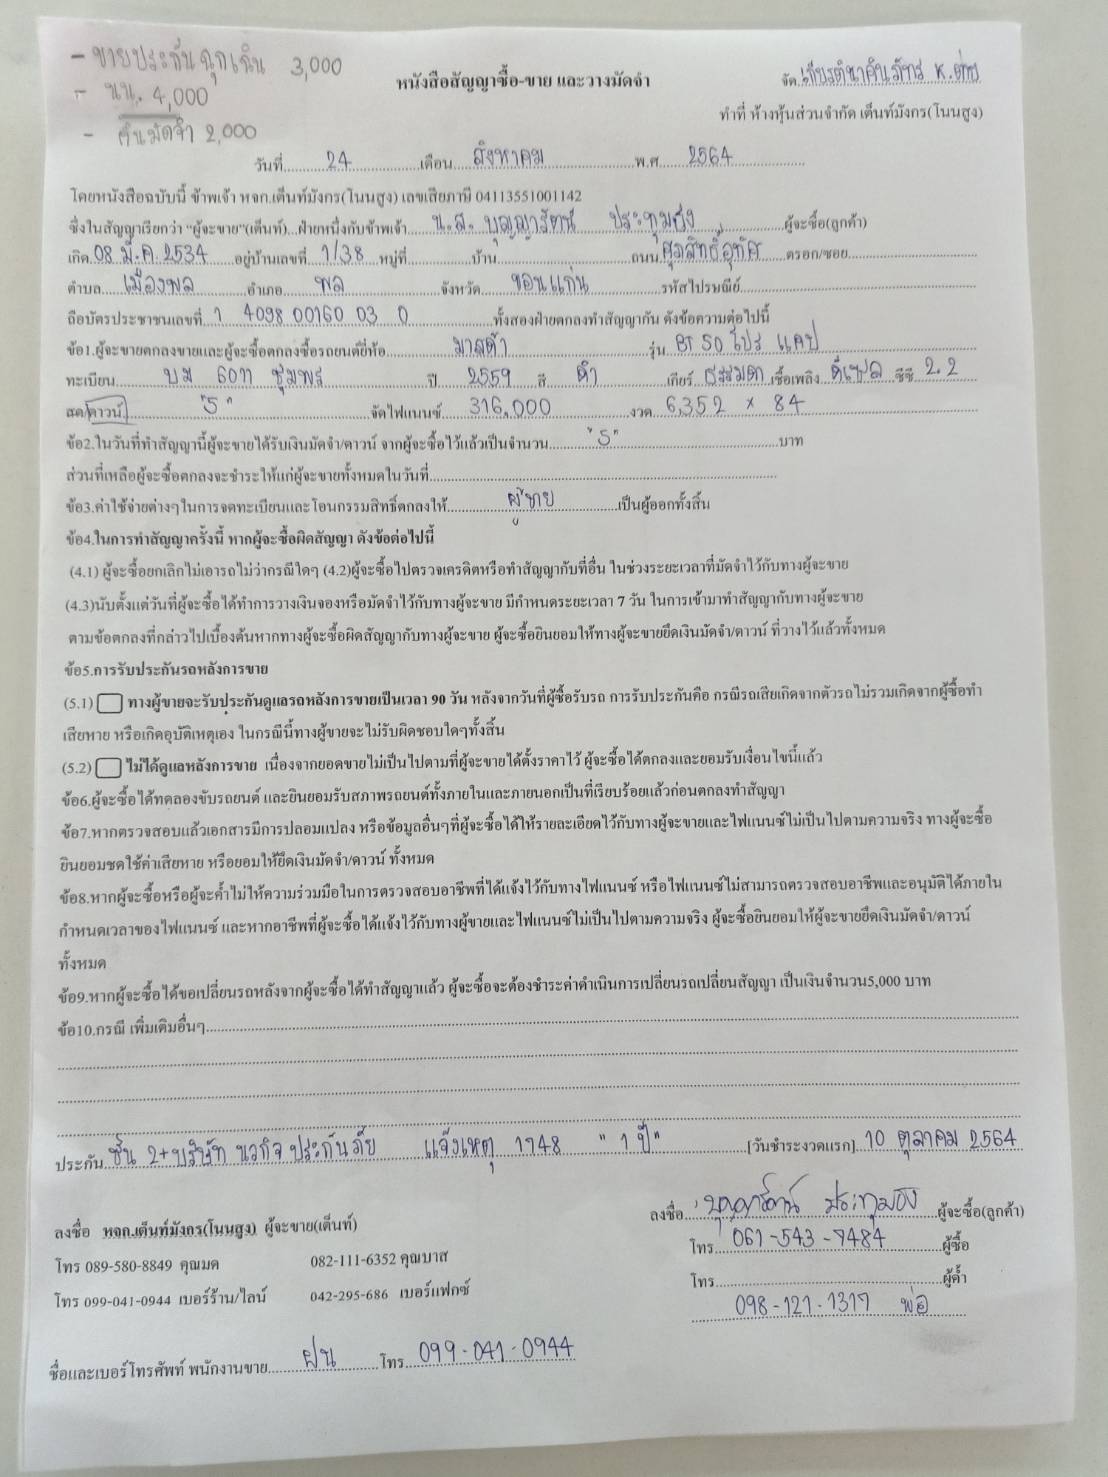 - ขายประกันฉุกเฉิน 3,000
- นน. 4,000
- คืนมัดจำ 2,000
หนังสือสัญญาซื้อ-ขาย และวางมัดจำ
จัด เกียรตินาคินภัทร
ทำที่ ห้างหุ้นส่วนจำกัด เต็นท์มังกร(โนนสูง)
วันที่ 24 เดือน สิงหาคม พ.ศ. 2564
โดยหนังสือฉบับนี้ ข้าพเจ้า หจก.เต็นท์มังกร(โนนสูง) เลขเสียภาษี 04113551001142
ซึ่งในสัญญาเรียกว่า “ผู้จะขาย”(เต็นท์)...ฝ่ายหนึ่งกับข้าพเจ้า น.ส. บุญญารัตน์ ประทุมยัง ผู้จะซื้อ(ลูกค้า)
เกิด 08 มี.ค. 2534 อยู่บ้านเลขที่ 1/38 หมู่ที่ บ้าน ถนน ศุภสิทธิ์อุทิศ ตรอก/ซอย
ตำบล เมืองพล อำเภอ พล จังหวัด ขอนแก่น รหัสไปรษณีย์
ถือบัตรประชาชนเลขที่ 1 4098 00160 03 0 ทั้งสองฝ่ายตกลงทำสัญญากัน ดังข้อความต่อไปนี้
ข้อ1.ผู้จะขายตกลงขายและผู้จะซื้อตกลงซื้อรถยนต์ยี่ห้อ มาสด้า รุ่น BT 50 โปร แคป
ทะเบียน บม 6011 ชุมพร ปี 2559 สี ดำ เกียร์ ธรรมดา เชื้อเพลิง ดีเซล ซีซี 2.2
สด/ดาวน์ "5" จัดไฟแนนซ์ 316,000 งวด 6,352 x 84
ข้อ2.ในวันที่ทำสัญญานี้ผู้จะขายได้รับเงินมัดจำ/ดาวน์ จากผู้จะซื้อไว้แล้วเป็นจำนวน "5" บาท
ส่วนที่เหลือผู้จะซื้อตกลงจะชำระให้แก่ผู้จะขายทั้งหมดในวันที่
ข้อ3.ค่าใช้จ่ายต่างๆในการจดทะเบียนและโอนกรรมสิทธิ์ตกลงให้ ผู้ขาย เป็นผู้ออกทั้งสิ้น
ข้อ4.ในการทำสัญญาครั้งนี้ หากผู้จะซื้อผิดสัญญา ดังข้อต่อไปนี้
(4.1) ผู้จะซื้อยกเลิกไม่เอารถไม่ว่ากรณีใดๆ (4.2)ผู้จะซื้อไปตรวจเครดิตหรือทำสัญญากับที่อื่น ในช่วงระยะเวลาที่มัดจำไว้กับทางผู้จะขาย
(4.3)นับตั้งแต่วันที่ผู้จะซื้อได้ทำการวางเงินจองหรือมัดจำไว้กับทางผู้จะขาย มีกำหนดระยะเวลา 7 วัน ในการเข้ามาทำสัญญากับทางผู้จะขาย
ตามข้อตกลงที่กล่าวไปเบื้องต้นหากทางผู้จะซื้อผิดสัญญากับทางผู้จะขาย ผู้จะซื้อยินยอมให้ทางผู้จะขายยึดเงินมัดจำ/ดาวน์ ที่วางไว้แล้วทั้งหมด
ข้อ5.การรับประกันรถหลังการขาย
(5.1) ทางผู้ขายจะรับประกันดูแลรถหลังการขายเป็นเวลา 90 วัน หลังจากวันที่ผู้ซื้อรับรถ การรับประกันคือ กรณีรถเสียเกิดจากตัวรถไม่รวมเกิดจากผู้ซื้อทำ
เสียหาย หรือเกิดอุบัติเหตุเอง ในกรณีนี้ทางผู้ขายจะไม่รับผิดชอบใดๆทั้งสิ้น
(5.2) ไม่ได้ดูแลหลังการขาย เนื่องจากยอดขายไม่เป็นไปตามที่ผู้จะขายได้ตั้งราคาไว้ ผู้จะซื้อได้ตกลงและยอมรับเงื่อนไขนี้แล้ว
ข้อ6.ผู้จะซื้อได้ทดลองขับรถยนต์ และยินยอมรับสภาพรถยนต์ทั้งภายในและภายนอกเป็นที่เรียบร้อยแล้วก่อนตกลงทำสัญญา
ข้อ7.หากตรวจสอบแล้วเอกสารมีการปลอมแปลง หรือข้อมูลอื่นๆที่ผู้จะซื้อได้ให้รายละเอียดไว้กับทางผู้จะขายและไฟแนนซ์ไม่เป็นไปตามความจริง ทางผู้จะซื้อ
ยินยอมชดใช้ค่าเสียหาย หรือยอมให้ยึดเงินมัดจำ/ดาวน์ ทั้งหมด
ข้อ8.หากผู้จะซื้อหรือผู้จะค้ำไม่ให้ความร่วมมือในการตรวจสอบอาชีพที่ได้แจ้งไว้กับทางไฟแนนซ์ หรือไฟแนนซ์ไม่สามารถตรวจสอบอาชีพและอนุมัติได้ภายใน
กำหนดเวลาของไฟแนนซ์ และหากอาชีพที่ผู้จะซื้อได้แจ้งไว้กับทางผู้ขายและไฟแนนซ์ไม่เป็นไปตามความจริง ผู้จะซื้อยินยอมให้ผู้จะขายยึดเงินมัดจำ/ดาวน์
ทั้งหมด
ข้อ9.หากผู้จะซื้อได้ขอเปลี่ยนรถหลังจากผู้จะซื้อได้ทำสัญญาแล้ว ผู้จะซื้อจะต้องชำระค่าดำเนินการเปลี่ยนรถเปลี่ยนสัญญา เป็นเงินจำนวน5,000 บาท
ข้อ10.กรณี เพิ่มเติมอื่นๆ
ประกัน ชั้น 2+ บริษัท นวกิจ ประกันภัย แจ้งเหตุ 1748 "1 ปี" [วันชำระงวดแรก] 10 ตุลาคม 2564
ลงชื่อ บุญญารัตน์ ประทุมยัง ผู้จะซื้อ(ลูกค้า)
ลงชื่อ หจก.เต็นท์มังกร(โนนสูง) ผู้จะขาย(เต็นท์)
โทร 061-543-9484 ผู้ซื้อ
โทร 089-580-8849 คุณมด 082-111-6352 คุณบาส
โทร ผู้ค้ำ
โทร 099-041-0944 เบอร์ร้าน/ไลน์ 042-295-686 เบอร์แฟกซ์
098-121-1317 พ่อ
ชื่อและเบอร์โทรศัพท์ พนักงานขาย ฝน โทร 099-041-0944